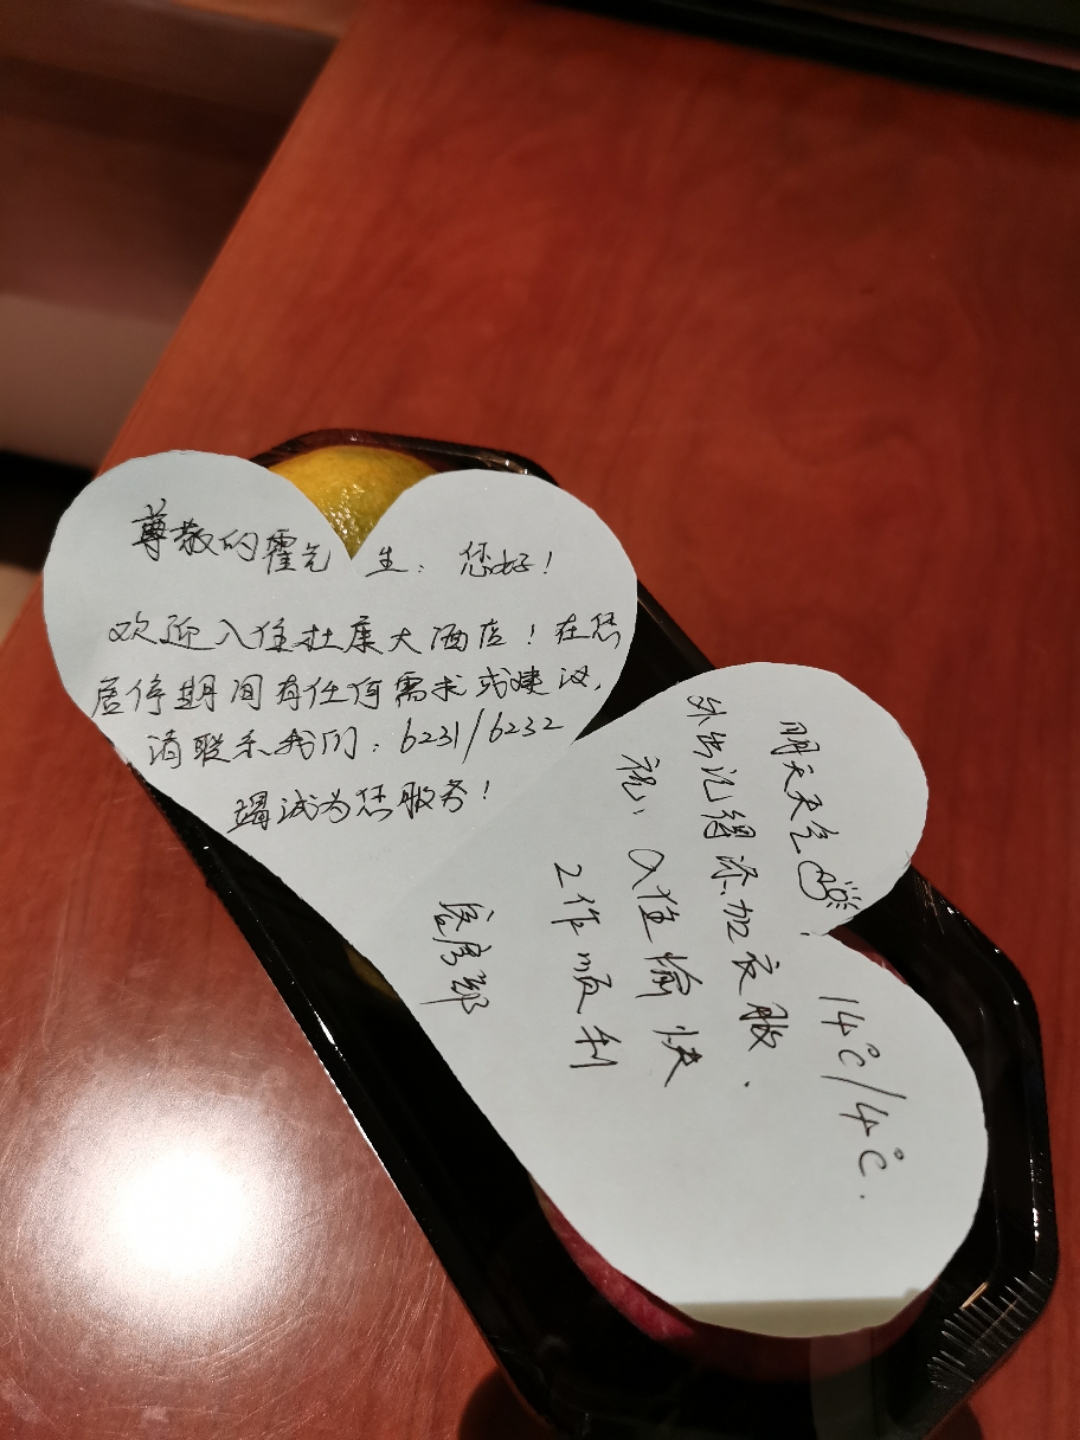 尊敬的霍先生：您好！
欢迎入住杜康大酒店！在您
居停期间有任何需求或建议，
请联系我们：6231/6232
竭诚为您服务！
客房部
明天天气！14℃/4℃.
外出记得添加衣服.
祝：入住愉快
工作顺利